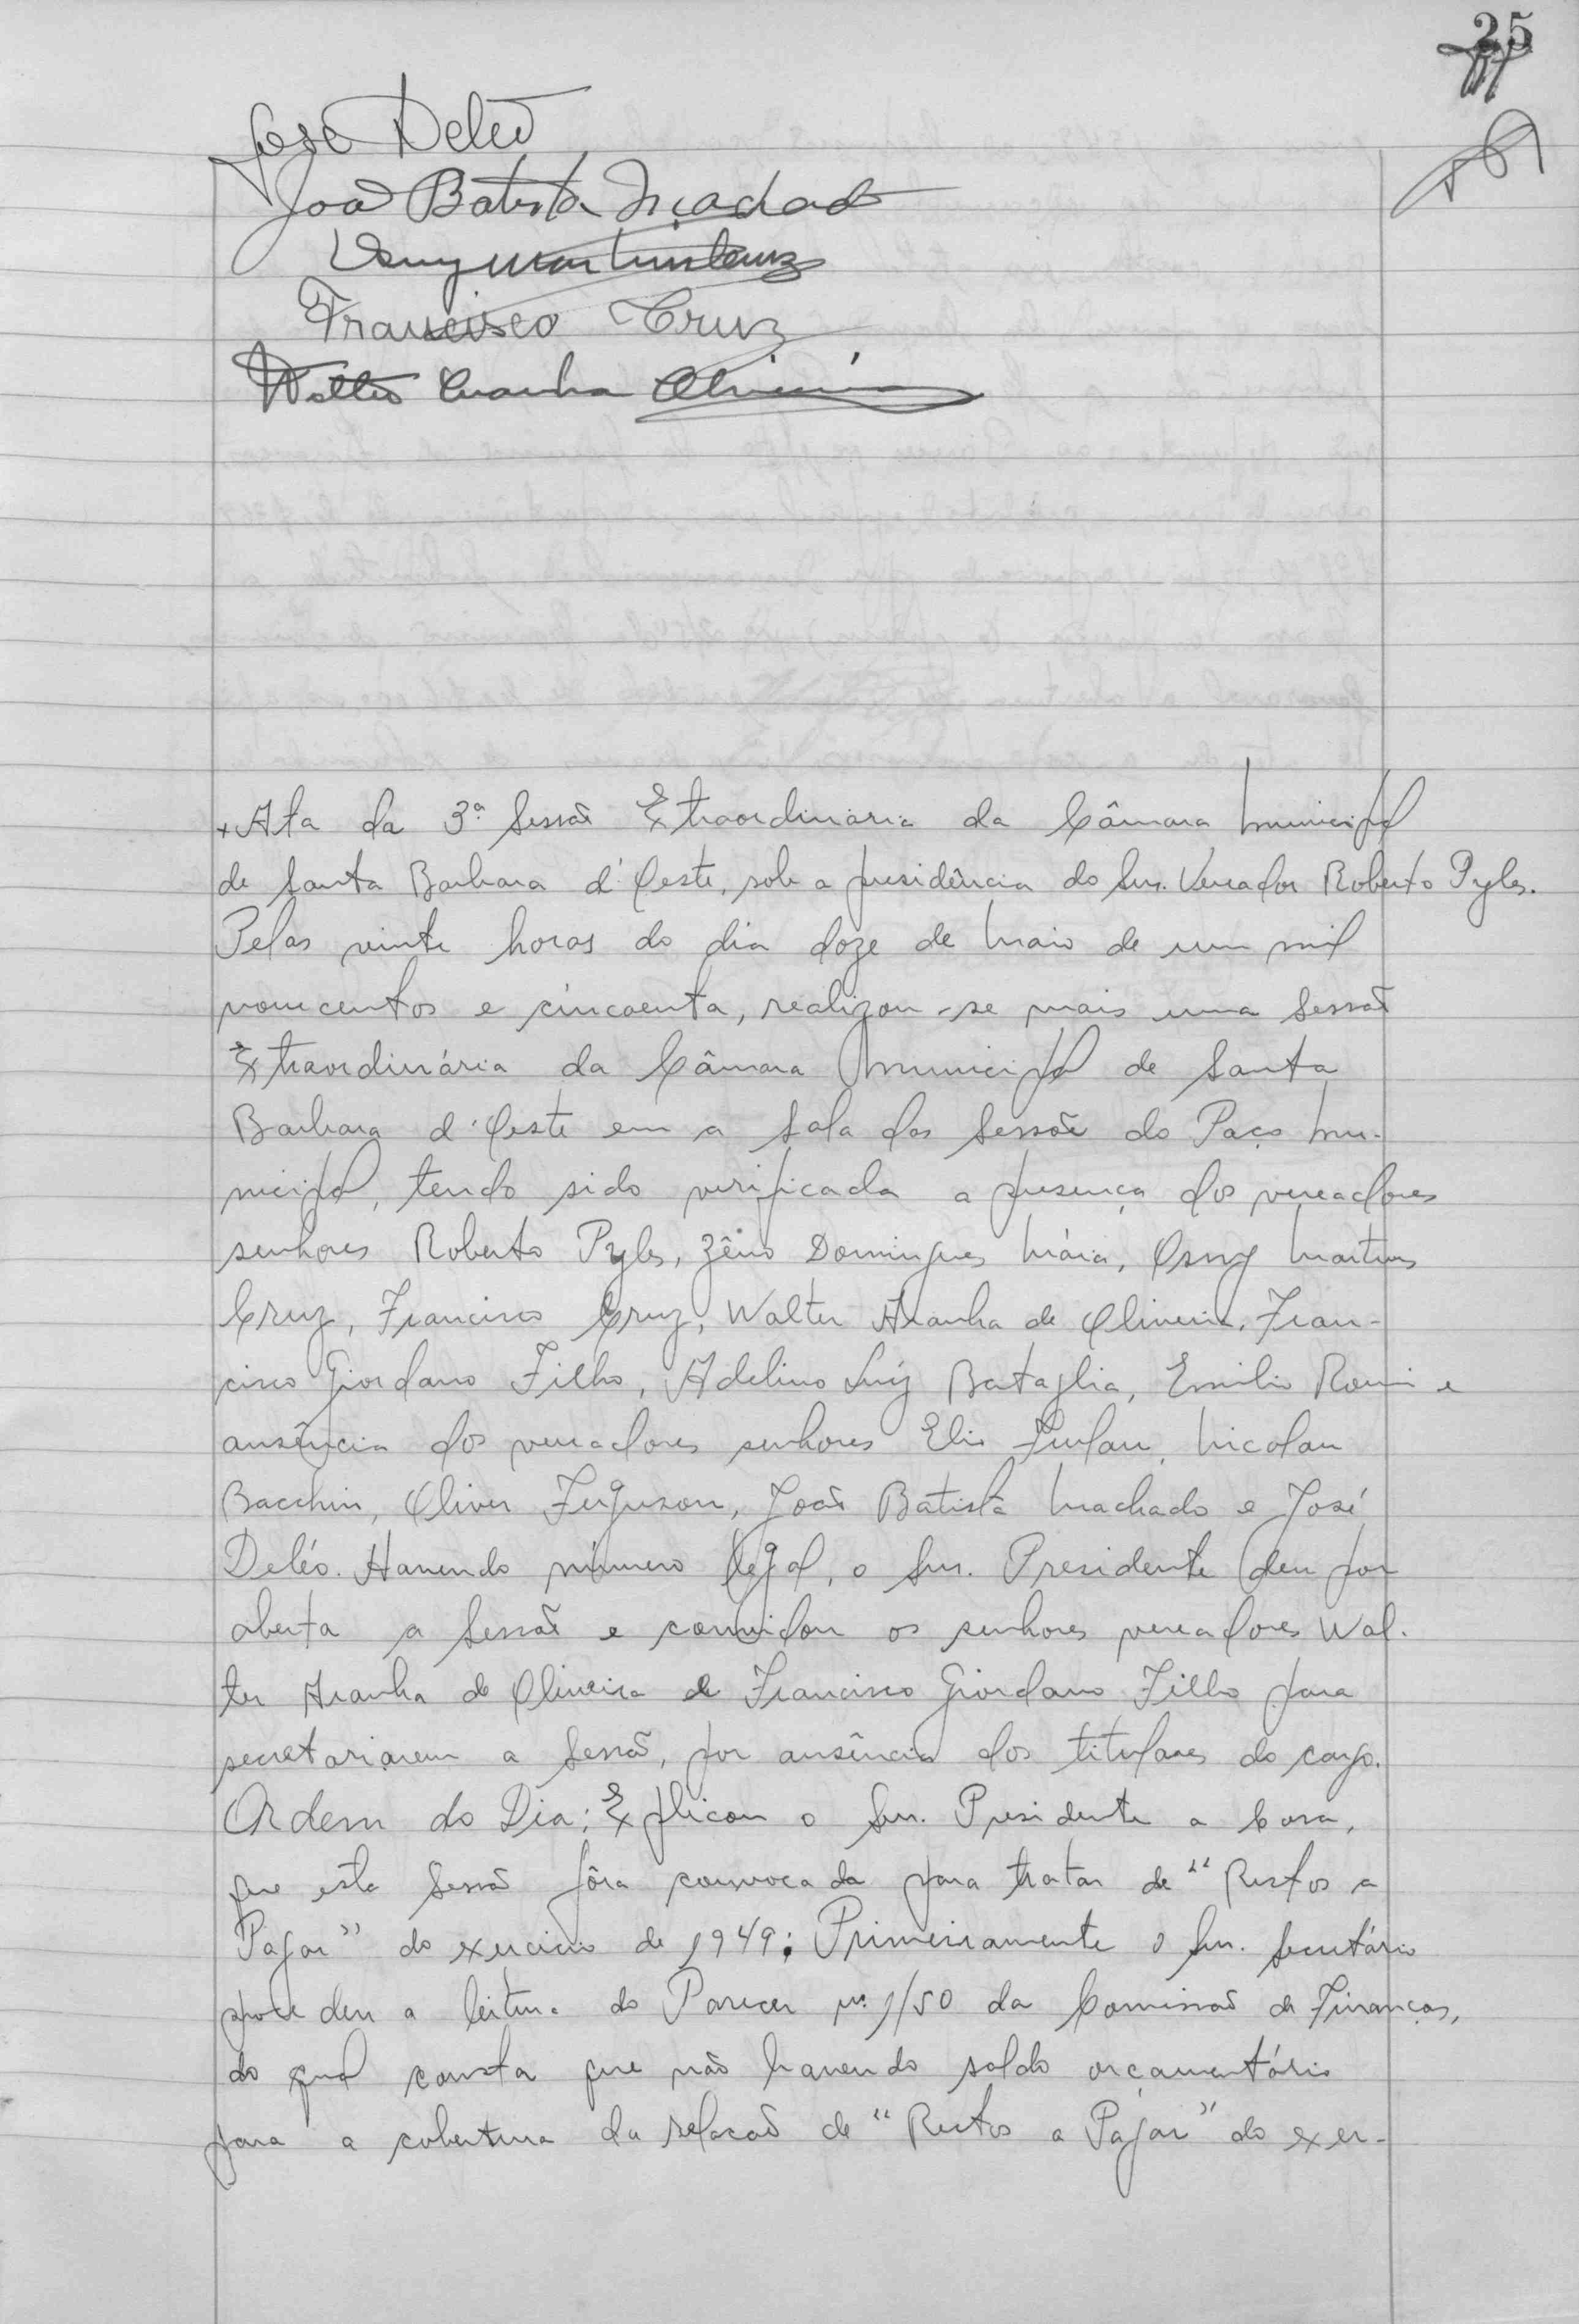 25
José Deleó
João Batista Machado
Osny Martins Cruz
Francisco Cruz
Walter Aranha Oliveira
+Ata da 3ª Sessão Extraordinaria da Câmara Municipal
de Santa Barbara d'Oeste, sob a presidência do Snr. Vereador Roberto Pyles.
Pelas vinte horas do dia doze de Maio de um mil
novecentos e cincoenta, realizou-se mais uma Sessão
Extraordinária da Câmara Municipal de Santa
Barbara d'Oeste em a sala das Sessões do Paço Mu-
nicipal, tendo sido verificada a presença dos vereadores
senhores Roberto Pyles, Zêno Domingues Maia, Osny Martins
Cruz, Francisco Cruz, Walter Aranha de Oliveira, Fran-
cisco Giordano Filho, Adelino Luiz Bataglia, Emilio Romi e
ausência dos vereadores senhores Elio Furlan, Nicolau
Bacchin, Oliver Ferguson, João Batista Machado e José
Deléo. Havendo número legal, o Snr. Presidente deu por
aberta a Sessão e convidou os senhores vereadores Wal-
ter Aranha de Oliveira e Francisco Giordano Filho para
secretariarem a Sessão, por ausência dos titulares do cargo.
Ordem do Dia: Explicou o Snr. Presidente a Casa,
que esta Sessão fôra convocada para tratar de "Restos a
Pagar" do exercicio de 1949: Primeiramente o Snr. Secretário
procedeu a leitura do Parecer nº 1/50 da Comissão de Finanças,
do qual consta que não havendo saldo orçamentário
para a cobertura da relacão de "Restos a Pagar" do exer-